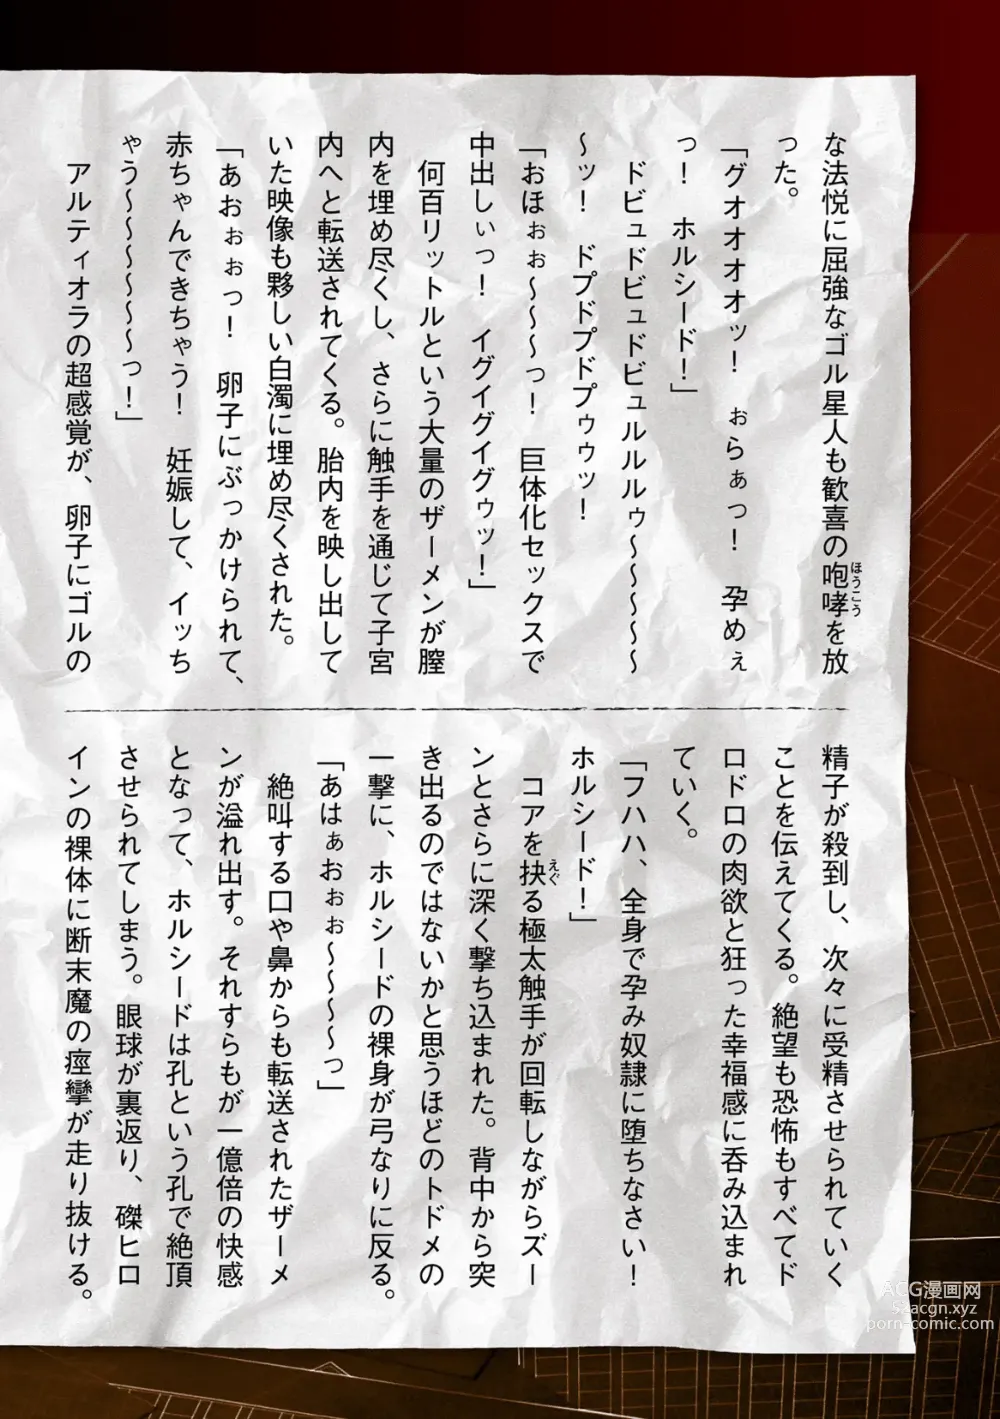 な法悦に屈強なゴル星人も歓喜の咆哮を放
ほうこう
った。
「グオオオオッ！　ぉらぁっ！　孕めぇ
っ！　ホルシード！」
ドビュドビュドビュルルルゥ～～～～～
～ッ！　ドプドプドプゥゥッ！
「おほぉぉ～～～っ！　巨体化セックスで
中出しぃっ！　イグイグイグゥッ！」
何百リットルという大量のザーメンが膣
内を埋め尽くし、さらに触手を通じて子宮
内へと転送されてくる。胎内を映し出して
いた映像も夥しい白濁に埋め尽くされた。
「あおぉぉっ！　卵子にぶっかけられて、
赤ちゃんできちゃう！　妊娠して、イッち
ゃう～～～～～～っ！」
アルティオラの超感覚が、卵子にゴルの
精子が殺到し、次々に受精させられていく
ことを伝えてくる。絶望も恐怖もすべてド
ロドロの肉欲と狂った幸福感に呑み込まれ
ていく。
「フハハ、全身で孕み奴隷に堕ちなさい！
ホルシード！」
コアを抉る極太触手が回転しながらズー
えぐ
ンとさらに深く撃ち込まれた。背中から突
き出るのではないかと思うほどのトドメの
一撃に、ホルシードの裸身が弓なりに反る。
「あはぁおぉぉ～～～～～っ」
絶叫する口や鼻からも転送されたザーメ
ンが溢れ出す。それすらもが一億倍の快感
となって、ホルシードは孔という孔で絶頂
させられてしまう。眼球が裏返り、磔ヒロ
インの裸体に断末魔の痙攣が走り抜ける。
ACG漫画网
52acgn.xyz
porn-comic.com